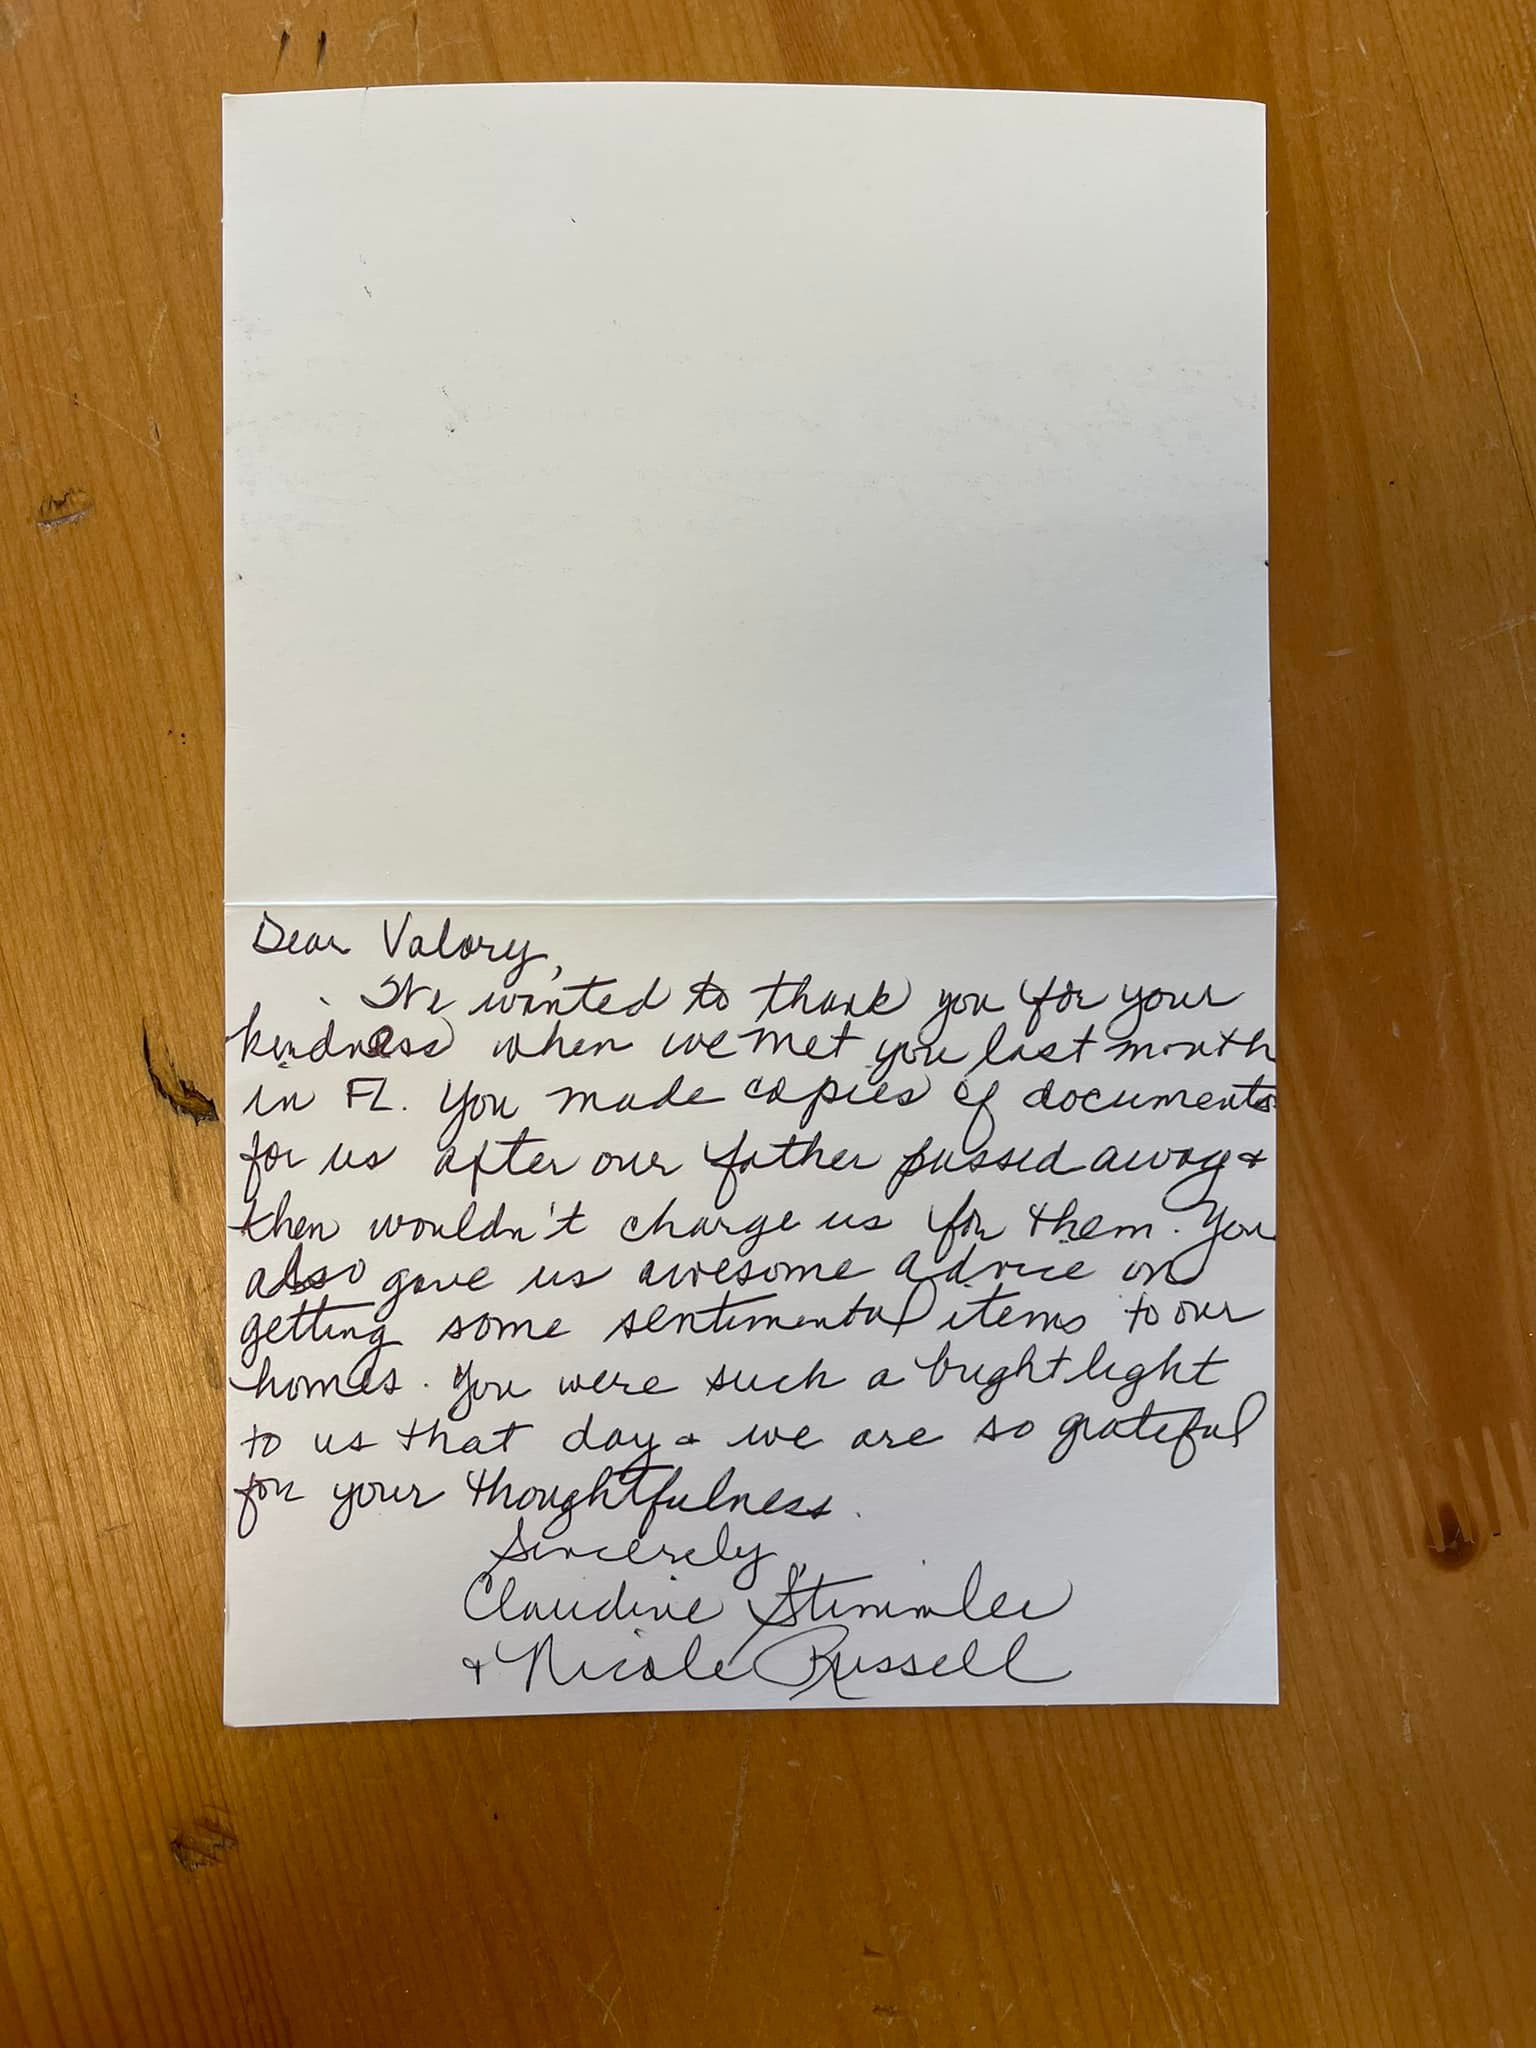 Dear Valory,
We wanted to thank you for your
kindness when we met you last month
in FL. You made copies of documents
for us after our father passed away &
then wouldn't charge us for them. You
also gave us awesome advice on
getting some sentimental items to our
homes. You were such a bright light
to us that day & we are so grateful
for your thoughtfulness.
Sincerely,
Claudine Stimmler
& Nicole Russell